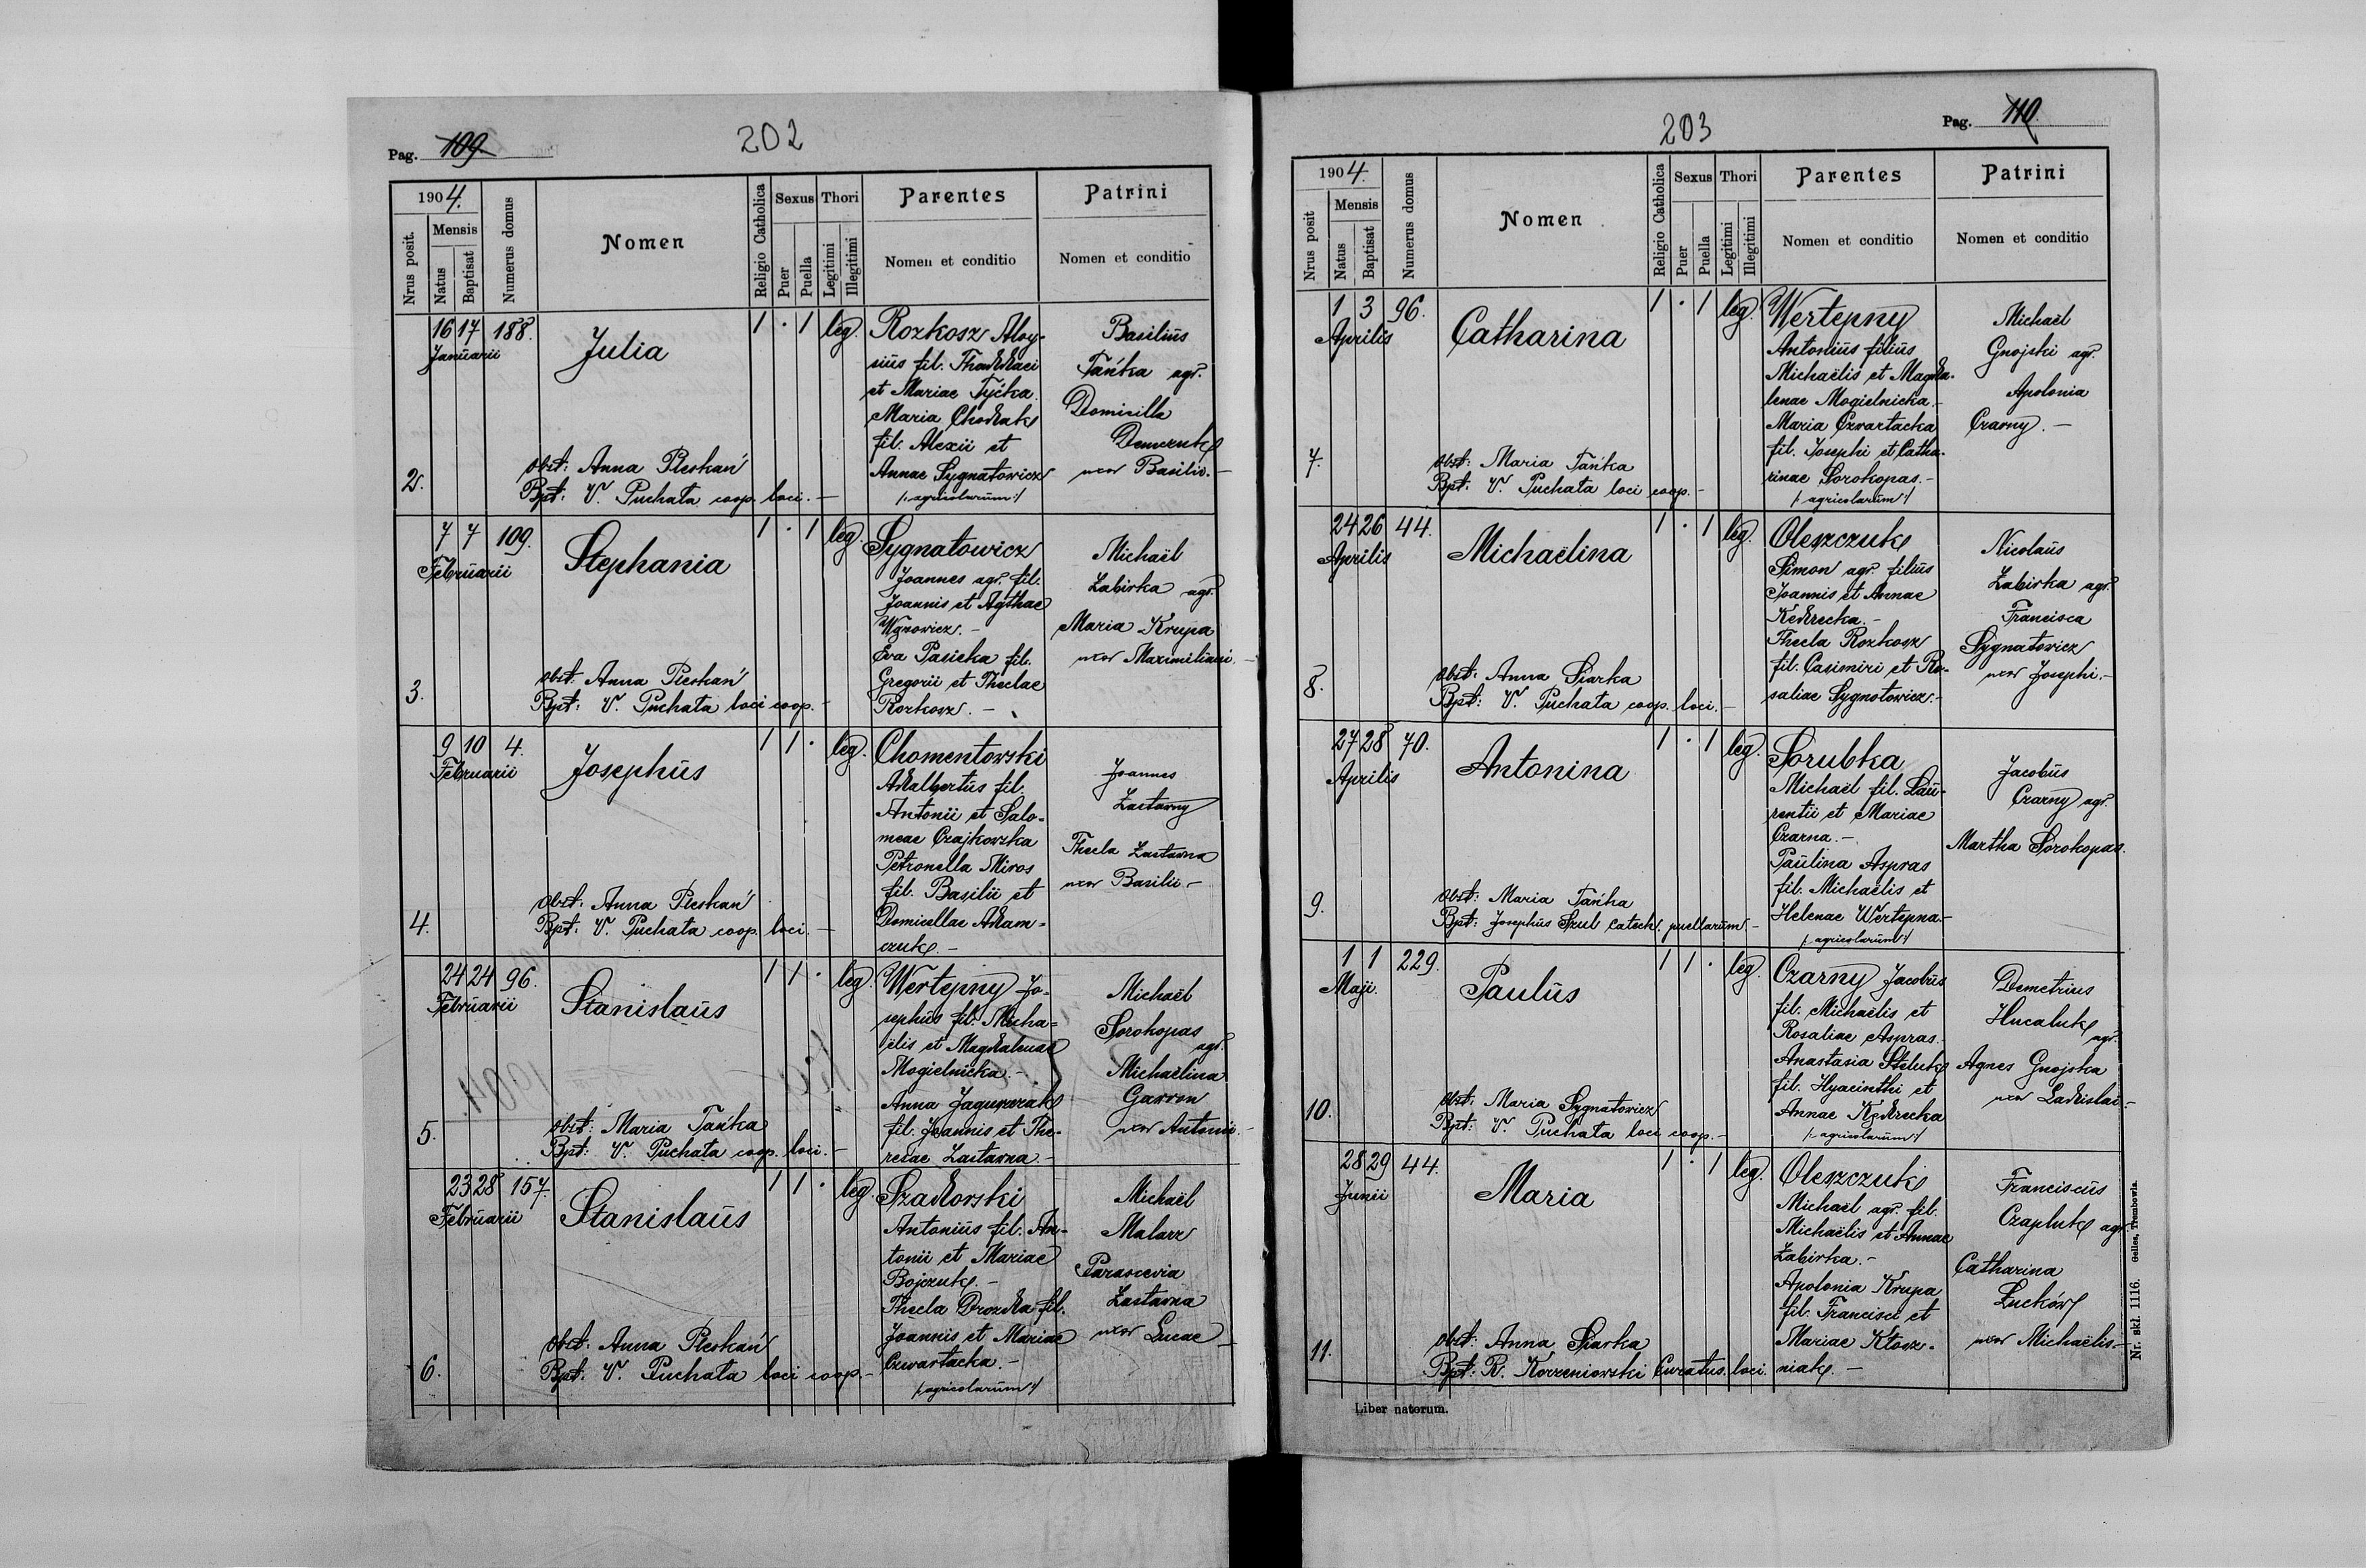 Pag. 109
202
1904.
Nrus posit.
Mensis
Natus
Baptisat
Numerus domus
Nomen
Religio Catholica
Sexus
Puer
Puella
Thori
Legitimi
Illegitimi
Parentes
Nomen et conditio
Patrini
Nomen et conditio
2.
16 17 188.
Januarii
Julia
1 · 1 leg.
obst: Anna Pleskań
Bpt: V. Puchata coop. loci. –
Rozkosz Aloy-
sius fil. Thaddaei
et Mariae Tyćka.
Maria Chodak
fil. Alexii et
Annae Sygnatowicz
/: agricolarum :/
Basilius
Tańka agr.
Domicilla
Demczuk
uxor Basilii. –
3.
7 7 109.
Februarii
Stephania
1 · 1 leg.
obst. Anna Pleskań
Bpt: V. Puchata loci coop. –
Sygnatowicz
Joannes agr. fil.
Joannis et Agthae
Wąsowicz. –
Eva Pasicka fil.
Gregorii et Theclae
Rozkosz. –
Michaël
Łabirka agr.
Maria Krupa
uxor Maximiliani. –
4.
9 10 4.
Februarii
Josephus
1 1 · leg.
obst. Anna Pleskań
Bpt. V. Puchata coop. loci. –
Chomentowski
Adalbertus fil.
Antonii et Salo-
meae Czajkowska
Petronella Miros
fil. Basilii et
Domicellae Adam-
czuk. –
Joannes
Zastawny
Thecla Zastawna
uxor Basilii –
5.
24 24 96.
Februarii
Stanislaus
1 1 · leg.
obst: Maria Tańka
Bpt: V. Puchata coop. loci. –
Wertepny Jo-
sephus fil. Micha-
ëlis et Magdalenae
Mogielnicka. –
Anna Jagurczak
fil. Joannis et The-
resae Zastawna. –
Michaël
Sorokopas
agr.
Michaëlina
Gawron
uxor Antonii. –
6.
23 28 157.
Februarii
Stanislaus
1 1 · leg.
obst. Anna Pleskań
Bpt. V. Puchata loci coop. –
Szadkowski
Antonius fil. An-
tonii et Mariae
Bojczuk. –
Thecla Drozda fil.
Joannis et Mariae
Czwartacka. –
/: agricolarum :/
Michaël
Malarz
Parascevia
Zastawna
uxor Lucae –
203
Pag. 110.
1904.
Nrus posit
Mensis
Natus
Baptisat
Numerus domus
Nomen
Religio Catholica
Sexus
Puer
Puella
Thori
Legitimi
Illegitimi
Parentes
Nomen et conditio
Patrini
Nomen et conditio
7.
1 3 96.
Aprilis
Catharina
1 · 1 leg.
obst: Maria Tańka
Bpt: V. Puchata loci coop. –
Wertepny
Antonius filius
Michaëlis et Magda-
lenae Mogielnicka. –
Maria Czwartacka
fil. Josephi et Catha-
rinae Sorokopas. –
/: agricolarum :/
Michaël
Gnojski agr.
Apolonia
Czarny. –
8.
24 26 44.
Aprilis
Michaëlina
1 · 1 leg.
obst. Anna Siarka
Bpt: V. Puchata coop. loci. –
Oleszczuk
Simon agr. filius
Joannis et Annae
Kedrecka. –
Thecla Rozkosz
fil. Casimiri et Ro-
saliae Sygnotowicz. –
Nicolaus
Łabirka agr.
Francisca
Sygnatowicz
uxor Josephi. –
9.
27 28 70.
Aprilis
Antonina
1 · 1 leg.
obst: Maria Tańka
Bpt: Josephus Szul catech. puellarum. –
Sorubka
Michaël fil. Lau-
rentii et Mariae
Czarna. –
Paulina Aspras
fil. Michaëlis et
Helenae Wertepna. –
/: agricolarum :/
Jacobus
Czarny agr.
Martha Sorokopas.
10.
1 1 229.
Maji.
Paulus
1 1 · leg.
obst. Maria Sygnatowicz
Bpt: V. Puchata loci coop. –
Czarny Jacobus
fil. Michaëlis et
Rosaliae Aspras.
Anastasia Steluk
fil. Hyacinthi et
Annae Kędrecka
/: agricolarum :/
Demetrius
Hucaluk
agr.
Agnes Gnojska
uxor Ladislai. –
11.
28 29 44.
Junii
Maria
1 · 1 leg.
obst: Anna Siarka
Bpt: R. Korzeniowski Curatus loci.
Oleszczuk
Michaël agr. fil.
Michaëlis et Annae
Łabirka. –
Apolonia Krupa
fil. Francisci et
Mariae Kłosz-
niak. –
Franciscus
Czapluk agr.
Catharina
Łucków
uxor Michaëlis. –
Liber natorum.
Nr. skł. 1116. Gelles, Trembowla.